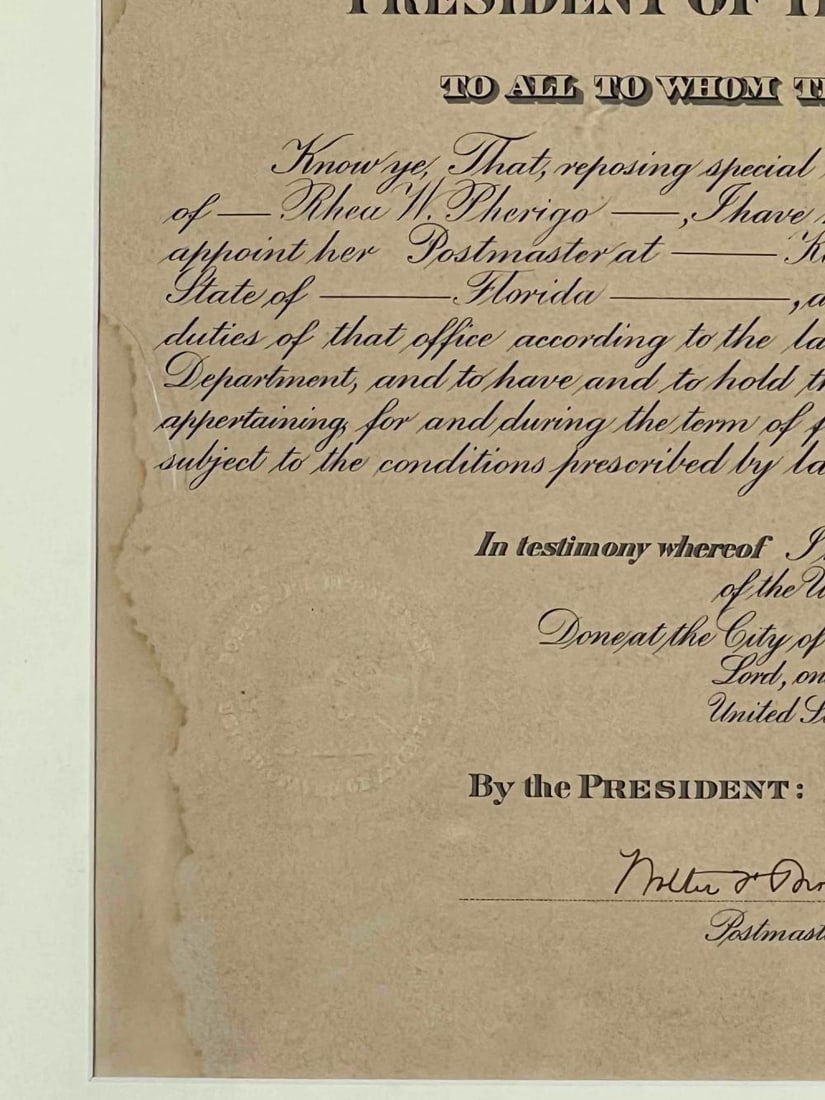 PRESIDENT OF
TO ALL TO WHOM
Know ye, That, reposing special
of — Rhea W. Pherigo —, I have
appoint her Postmaster at —
State of — Florida —,
duties of that office according to the
Department, and to have and to hold
appertaining, for and during the term of
subject to the conditions prescribed by
In testimony whereof I
of the
Done at the City of
Lord, on
United
By the PRESIDENT:
Walter F.